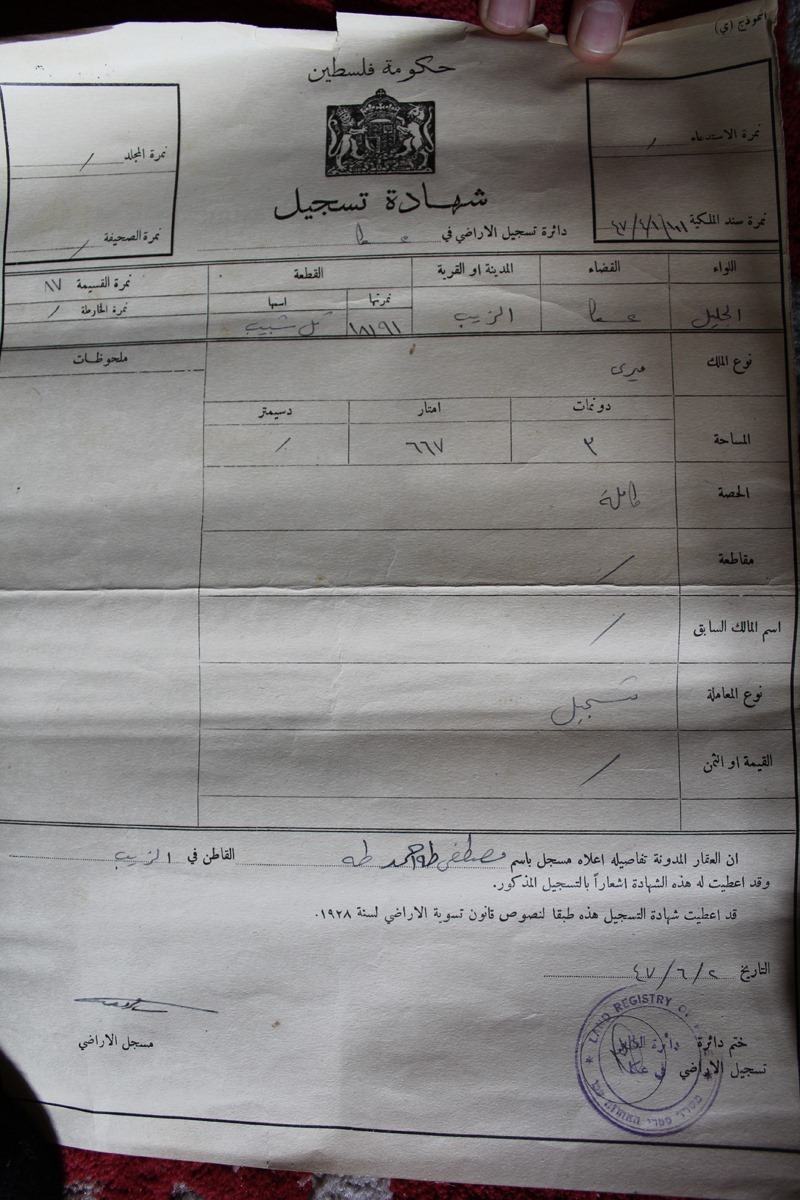 انموذج (ي)
حكومة فلسطين
نمرة الاستدعاء /
نمرة المجلد /
شهادة تسجيل
نمرة سند الملكية
نمرة الصحيفة /
دائرة تسجيل الاراضي في عكا
اللواء القضاء المدينة او القرية القطعة نمرة القسيمة ١٧
نمرتها اسمها نمرة الخارطة /
الجليل عكا الزيب ١٨١٩١ تل شبيب
نوع الملك ميرى ملحوظات
دونمات امتار دسيمتر
المساحة ٣ ٦٦٧ /
الحصة كاملة
مقاطعة /
اسم المالك السابق /
نوع المعاملة تسجيل
القيمة او الثمن /
ان العقار المدونة تفاصيله اعلاه مسجل باسم مصطفى طه احمد طه القاطن في الزيب
وقد اعطيت له هذه الشهادة اشعاراً بالتسجيل المذكور.
قد اعطيت شهادة التسجيل هذه طبقا لنصوص قانون تسوية الاراضي لسنة ١٩٢٨.
التاريخ ٤٧/٦/٢
ختم دائرة
تسجيل الاراضي
مسجل الاراضي
LAND REGISTRY OF
في عكا